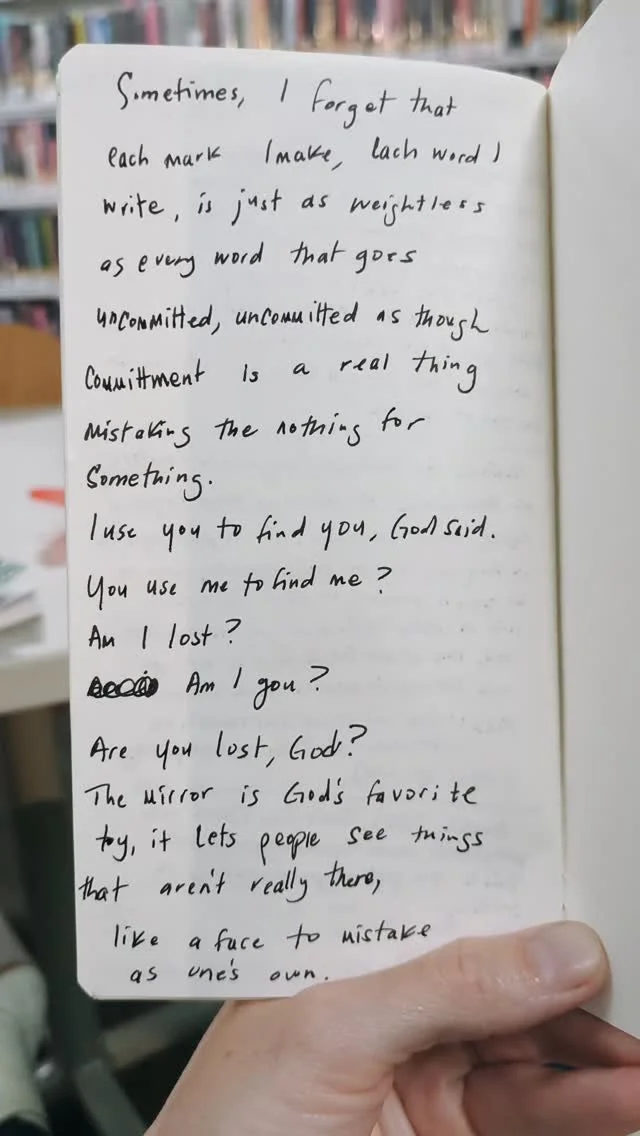 Sometimes, I forget that
each mark I make, each word I
write, is just as weightless
as every word that goes
uncommitted, uncommitted as though
Committment is a real thing
Mistaking the nothing for
Something.
I use you to find you, God said.
You use me to find me?
Am I lost?
Am I you?
Are you lost, God?
The mirror is God's favorite
toy, it lets people see things
that aren't really there,
like a face to mistake
as one's own.